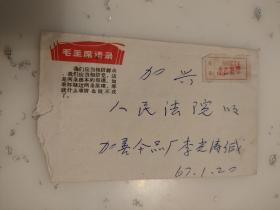 毛主席语录
我们应当相信群众，
我们应当相信党，这
是两条根本的原理。如
果怀疑这两条原理，那
就什么事情也做不成
了。
加兴
人民法院收
加善食品厂李光涛缄
67.1.20